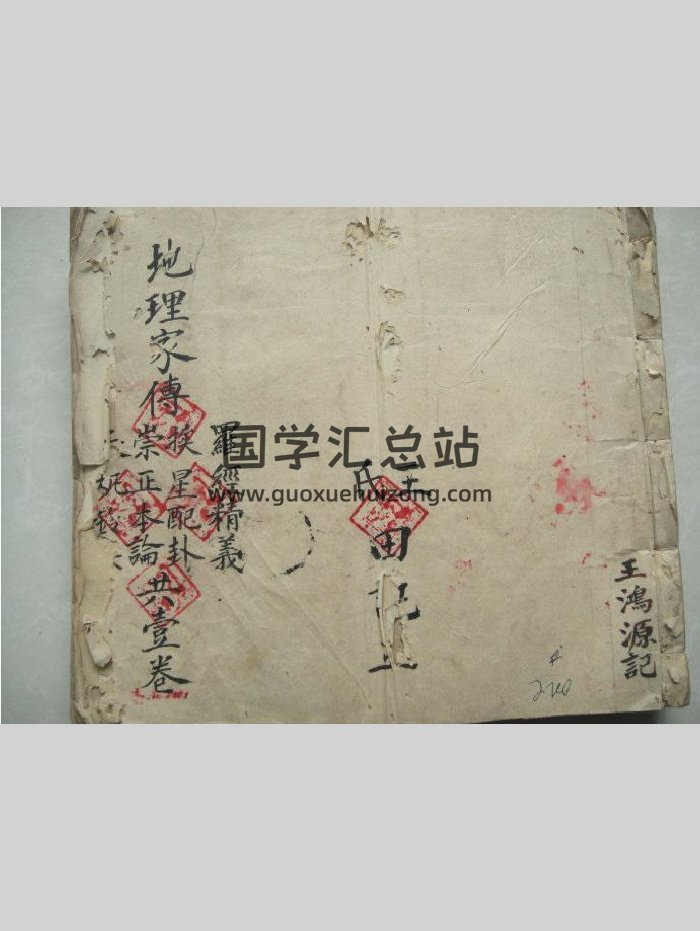 王鴻源記
王氏
田記
羅經精義
挨星配卦
地理家傳 共壹卷
崇正本論
国学汇总站
www.guoxuehuizong.com